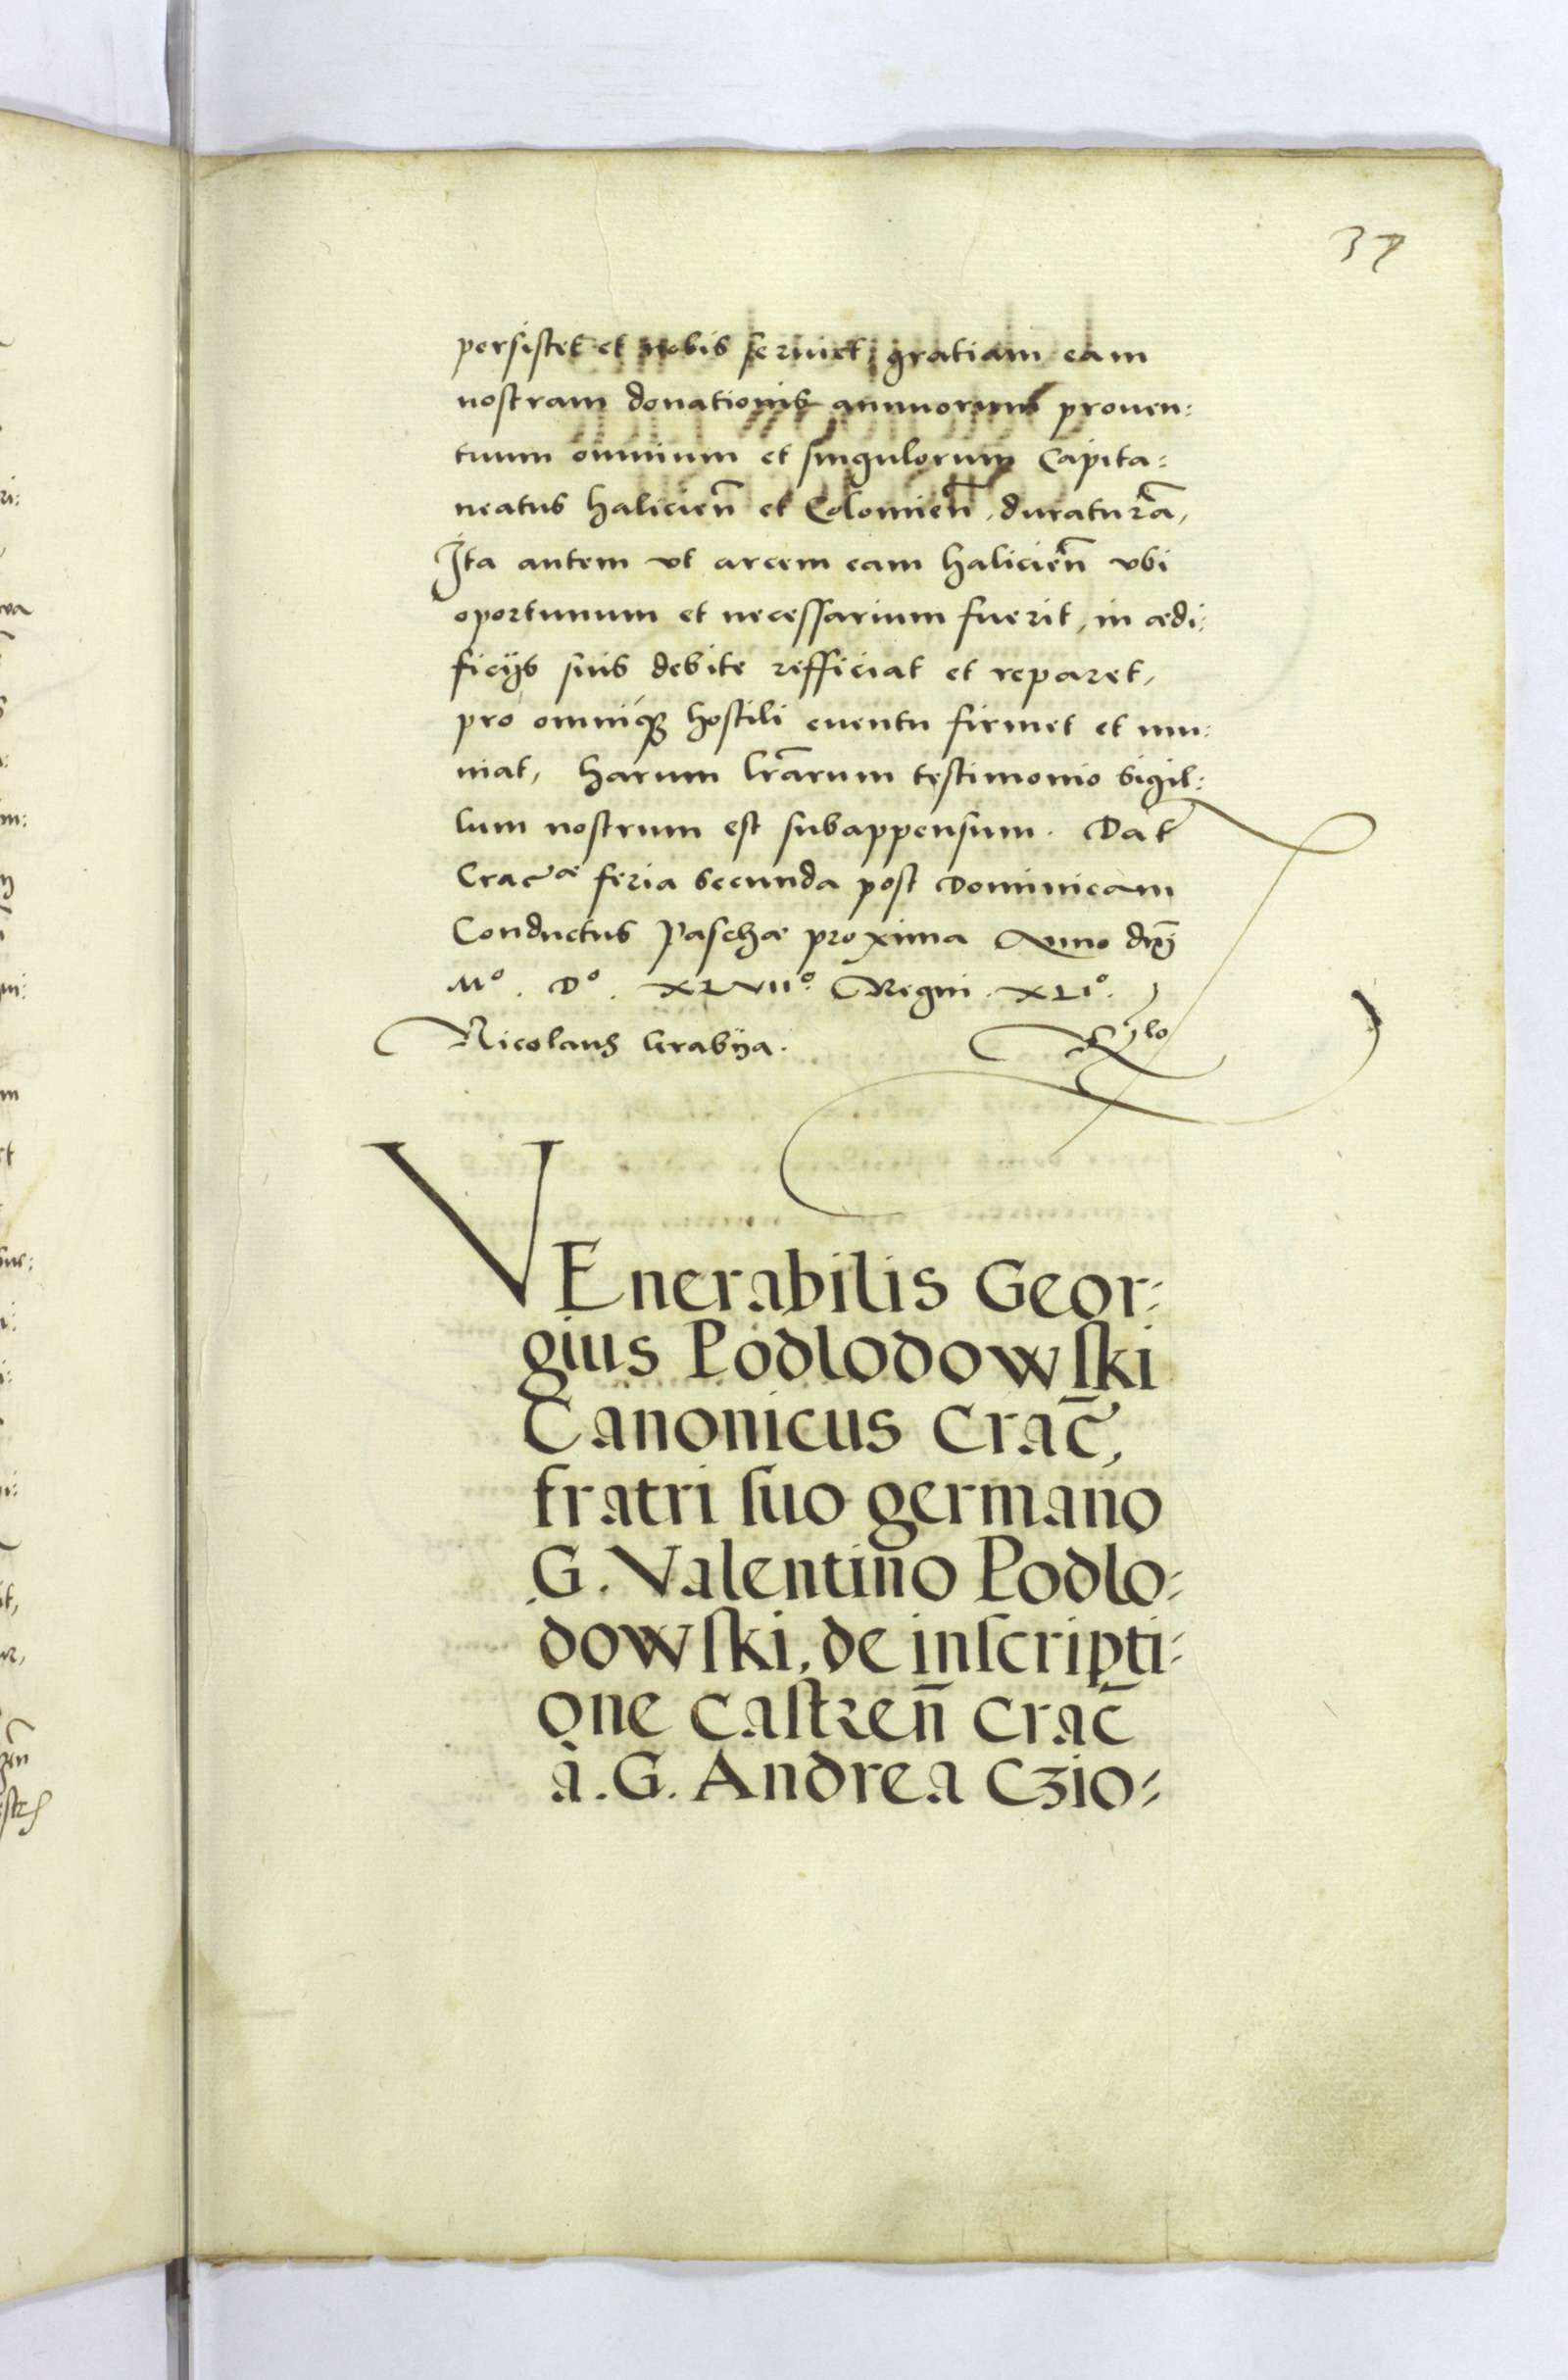 37
persistet et nobis seruiet, gratiam eam
nostram donationis annuorum prouen:
tuum omnium et singulorum Capita:
neatus halicien̄ et Colomien̄, duraturā,
Ita autem vt arcem eam halicien̄ vbi
oportunum et necessarium fuerit, in ædi:
ficijs suis debite refficiat et reparet,
pro omniq̃ hostili euentu firmet et mu:
niat, harum lr̄arum testimonio sigil:
lum nostrum est subappensum. Dat̄
Crac̄æ feria secunda post Dominicam
Conductus Paschæ proxima Anno dn̄j
Mº. Dº. XLVIIº. Regni. XLIº.
Nicolaus Grabya.
VEnerabilis Geor:
gius Podlodowski
Canonicus Crac̄,
fratri suo germano
G. Valentino Podlo:
dowski, de inscripti:
one castren̄ Crac̄
à. G. Andrea Czio: